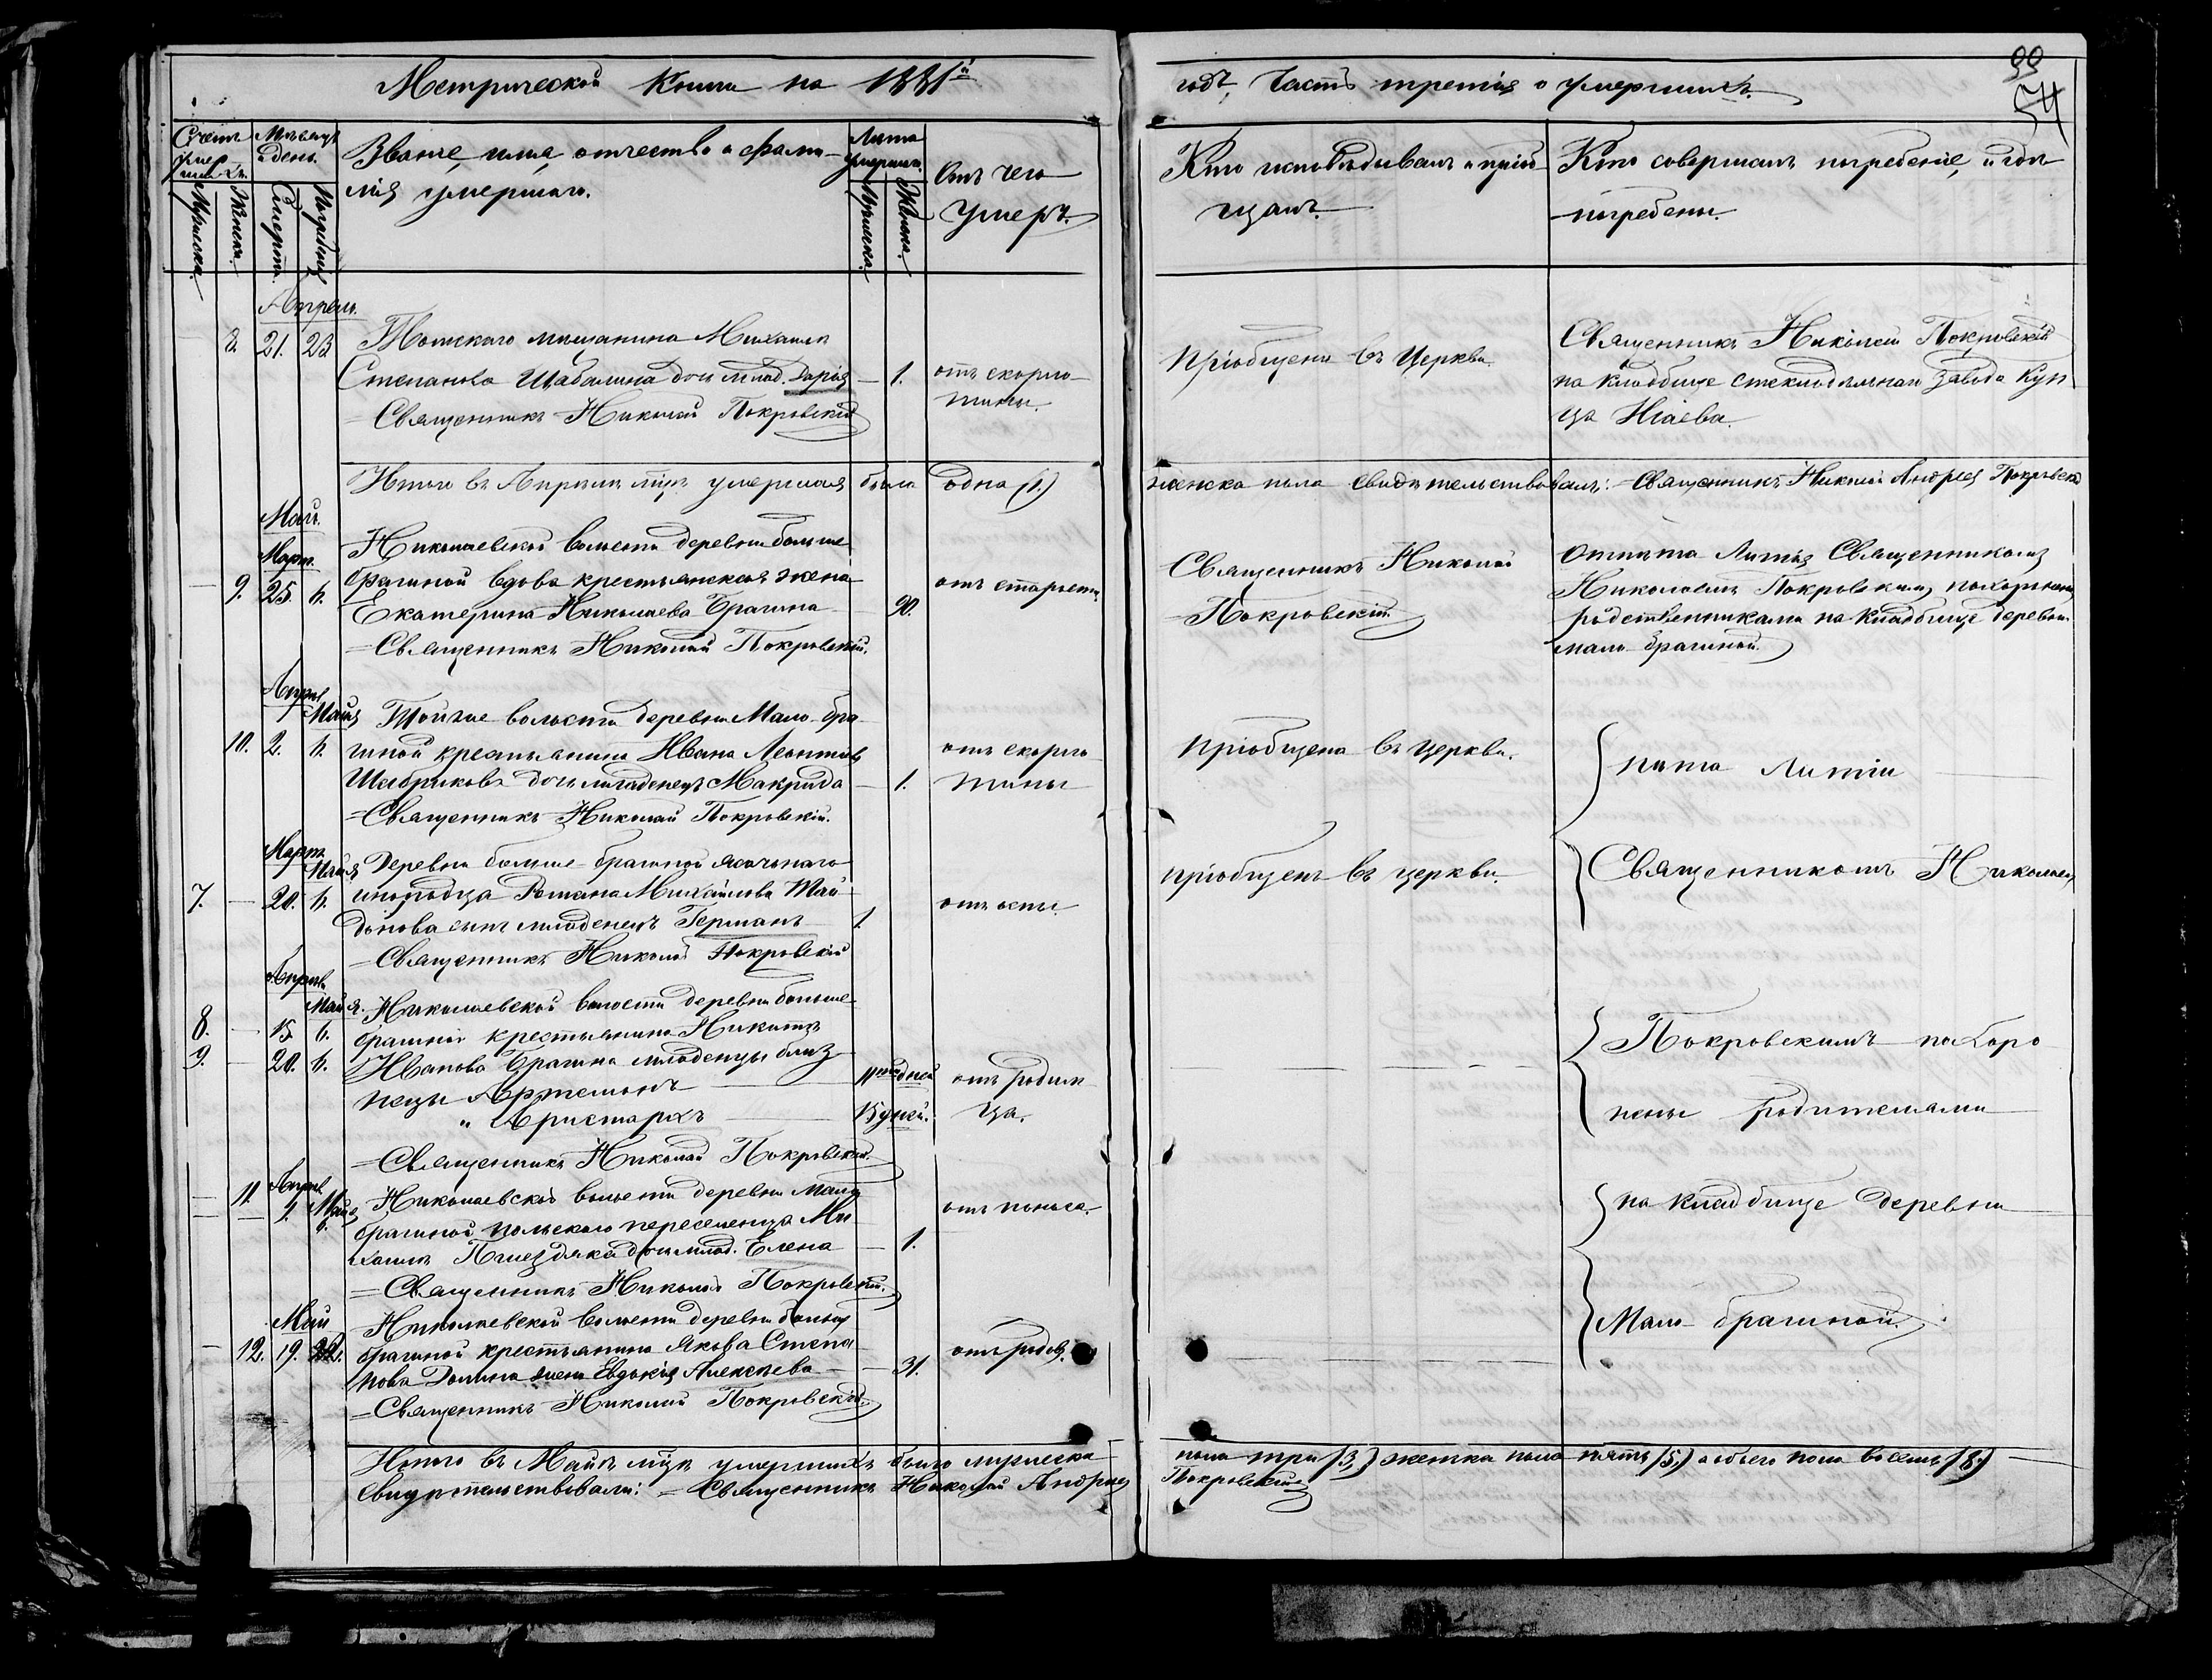 Метрической Книги на 1881й
годъ, Часть третія о умершихъ.
99
54
Счетъ умер-
шихъ.
Мѣсяцъ
и день.
Званіе, имя, отчество и фами-
лія умершаго.
Лѣта
умершаго.
Отъ чего
умеръ.
Кто исповѣдывалъ и пріоб-
щалъ.
Кто совершалъ погребеніе, и гдѣ
погребены.
Мужеска.
Женска.
Смерти.
Погребенія
Мужеска.
Женска.
Апрель.
8. 21. 23
Томскаго мѣщанина Михаила
Степанова Шабалина дочь млад. Дарья — 1.
=Священникъ Николай Покровскій
отъ скорла-
тины.
Пріобщена въ Церкви.
Священникъ Николай Покровскій
на кладбище стеклодѣльнаго завода Куп
ца
Итого въ Апрѣлѣ мцѣ умершая была одна (1.)
женска пола свидѣтельствовалъ: =Священникъ Николай Андреев Покровскій
Май.
Мартъ.
9. 25. 6.
Николаевской волости деревни больше
брагиной вдова крестьянская жена
Екатерина Николаева Брагина 90.
=Священникъ Николай Покровскій.
отъ старости.
Священникъ Николай
Покровскій.
Отпѣта Литія Священникомъ
Николаемъ Покровскимъ, похоронена
родственниками на кладбище деревни
мало брагиной.
Апрѣль
Майя
10. 2. 6.
Той же волости деревни Мало-бра
гиной крестьянина Ивана Леонтьева
дочь младенецъ Макрида — 1.
=Священникъ Николай Покровскій.
отъ скорла
тины
Пріобщена въ церкви.
пѣта Литія
Мартъ
Майя
7. — 20. 6.
Деревни больше-брагиной ясачнаго
инородца Романа Михайлова Май
донова сынъ младенецъ Германъ 1.
=Священникъ Николай Покровскій
отъ оспы.
пріобщенъ въ церкви.
Священникомъ Николаемъ
Апрѣль
Майя.
8. — 15. 6.
9. — 20. 6.
Николаевской волости деревни больше-
брагиной крестьянина Никиты
Иванова Брагина младенцы близ-
нецы Артемонъ — 11ти дней
" Аристархъ — 15 дней.
=Священникъ Николай Покровскій.
отъ родим
ца.
Покровскимъ похоро
нены родителями
Апрѣль
Майя
11. 9. 6.
Николаевской волости деревни мало
брагиной польскаго переселенца Ми
хаила дочь млад. Елена — 1.
=Священникъ Николай Покровскій.
отъ поноса.
на кладбище деревни
Май
12. 19. 22.
Николаевской волости деревни больше
брагиной крестьянина Якова Степа
нова жена Евдокія Алексѣева — 31.
=Священникъ Николай Покровскій
отъ родов
Мало-брагиной.
Итого въ Маѣ мцѣ умершихъ было мужеска
пола три (3,) женска пола пять (5,) а обоего пола восемь (8.)
свидѣтельствовали: =Священникъ Николай Андреев
Покровскій